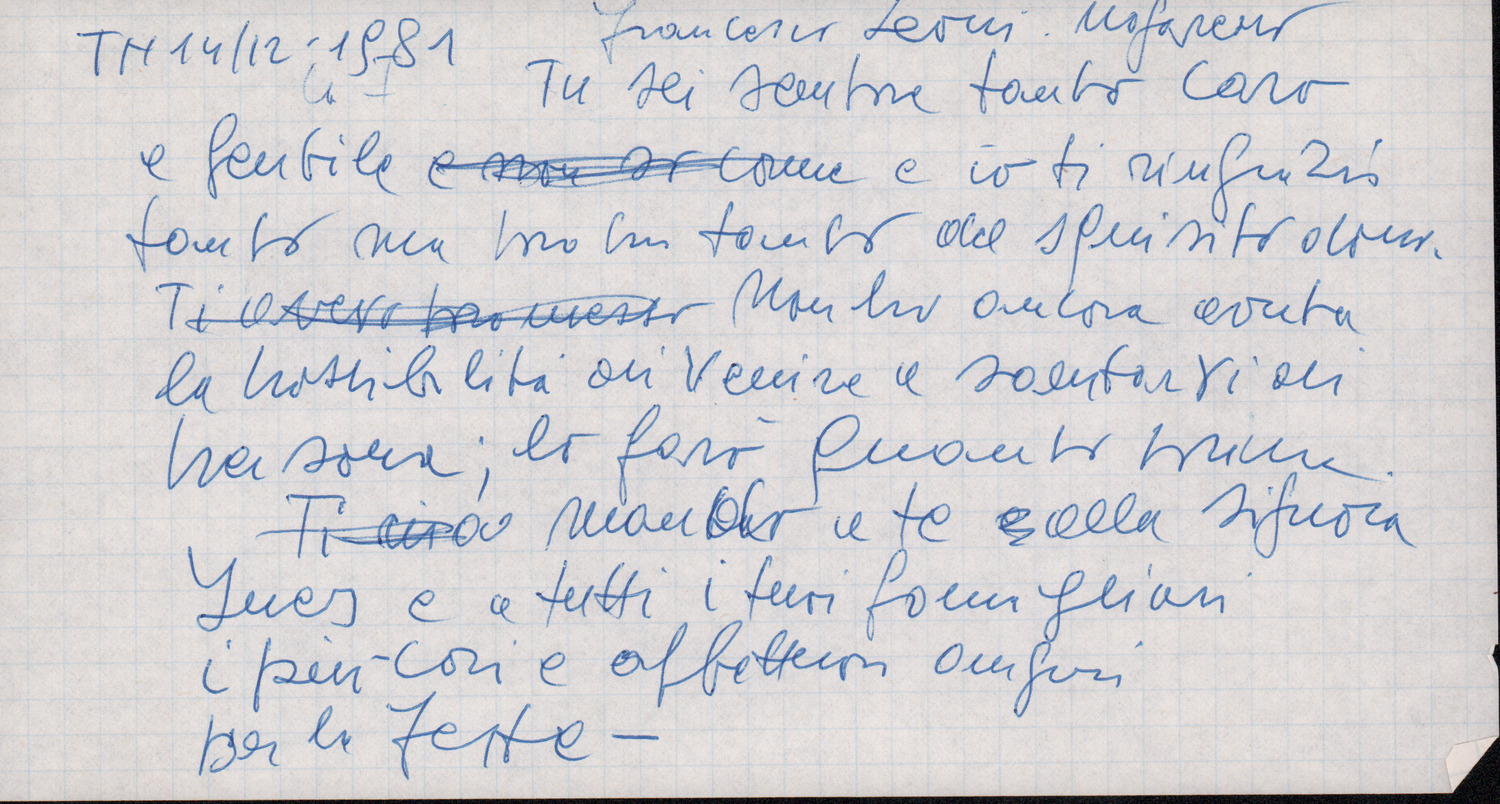 Francesco Leoni. Nofareno
TN 14/12-1981
Tu sei sempre tanto caro
e gentile e non so come e io ti ringrazio
tanto ma proprio tanto del squisito dono.
Ti avevo promesso Non ho ancora avuta
la possibilità di venire a salutarvi di
persona; lo farò quanto prima.
Ti mando a te e alla signora
Ines e a tutti i tuoi famigliari
i più cari e affettuosi auguri
per le Feste –